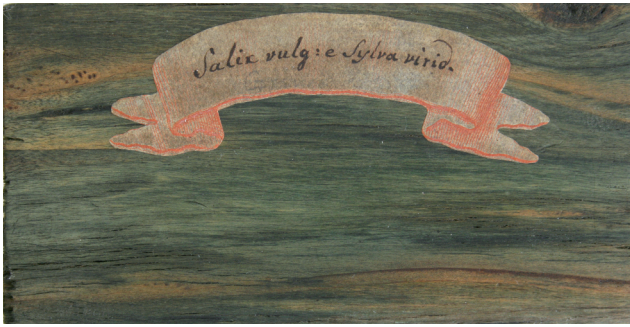 Salix vulg: e Sylva virid.